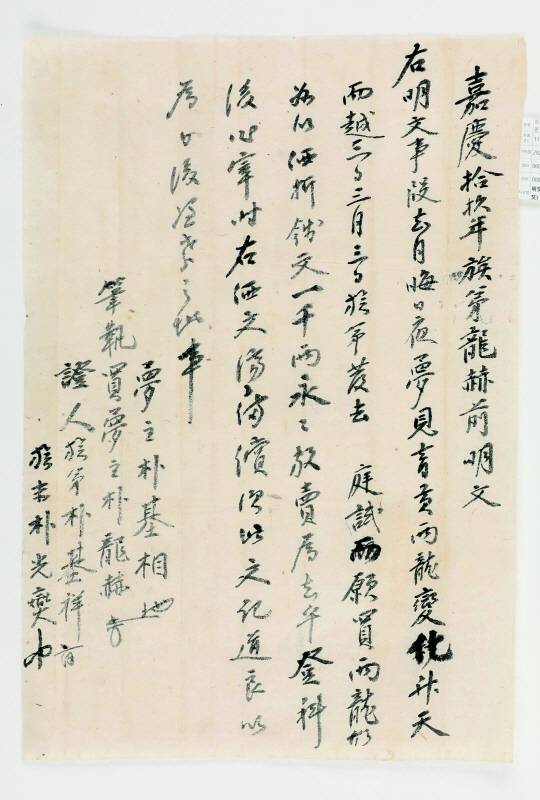 嘉慶拾玖年族弟龍赫前明文
右明文事段去月晦日夜夢見靑黃兩龍變化升天
而越三日三月三日族弟發去 庭試而願買兩龍
以価折錢文一千兩永〻放賣爲去乎登科
後 宰時右価文 備償次此文記道良以
爲日後憑考之地事
夢主朴基相
筆執買夢主朴龍赫
證人族弟朴基祥
族 朴光燮